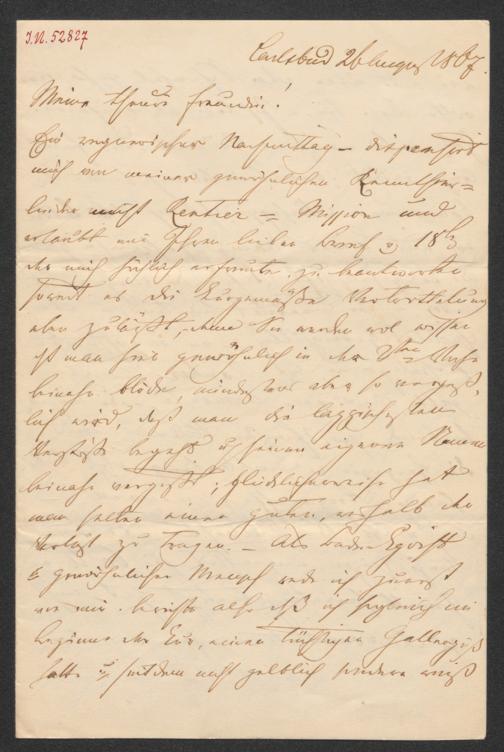 I.N. 52827
Carlsbad 26 August 1867.
Meine theure Freundin!
Ein regnerischer Nachmittag – dispensirt
mich von meiner gewöhnlichen
leider nicht Rentier = Mission und
erlaubt mir Ihren lieben Brief v. 18/8
der mich herzlich erfreute, zu beantworten
soweit es die kurgemäße Vertrottelung
eben zuläßt, denn Sie werden wol wissen
ist man hier gewöhnlich in der Woche
beinahe blöde, mindestens aber so vergeß=
lich wird, daß man die läppischesten
Verstöße begeht u seinen eigenen Namen
beinahe vergißt; glücklicherweise hat
man selten einen guten, weshalb der
Verlust zu tragen. – Als Bade-Egoist
& gewöhnlicher Mensch rede ich zuerst
von mir. berichte also daß ich sogleich im
Beginne der Cur, einen tüchtigen
hatte u seitdem nicht gelblich sondern weiß